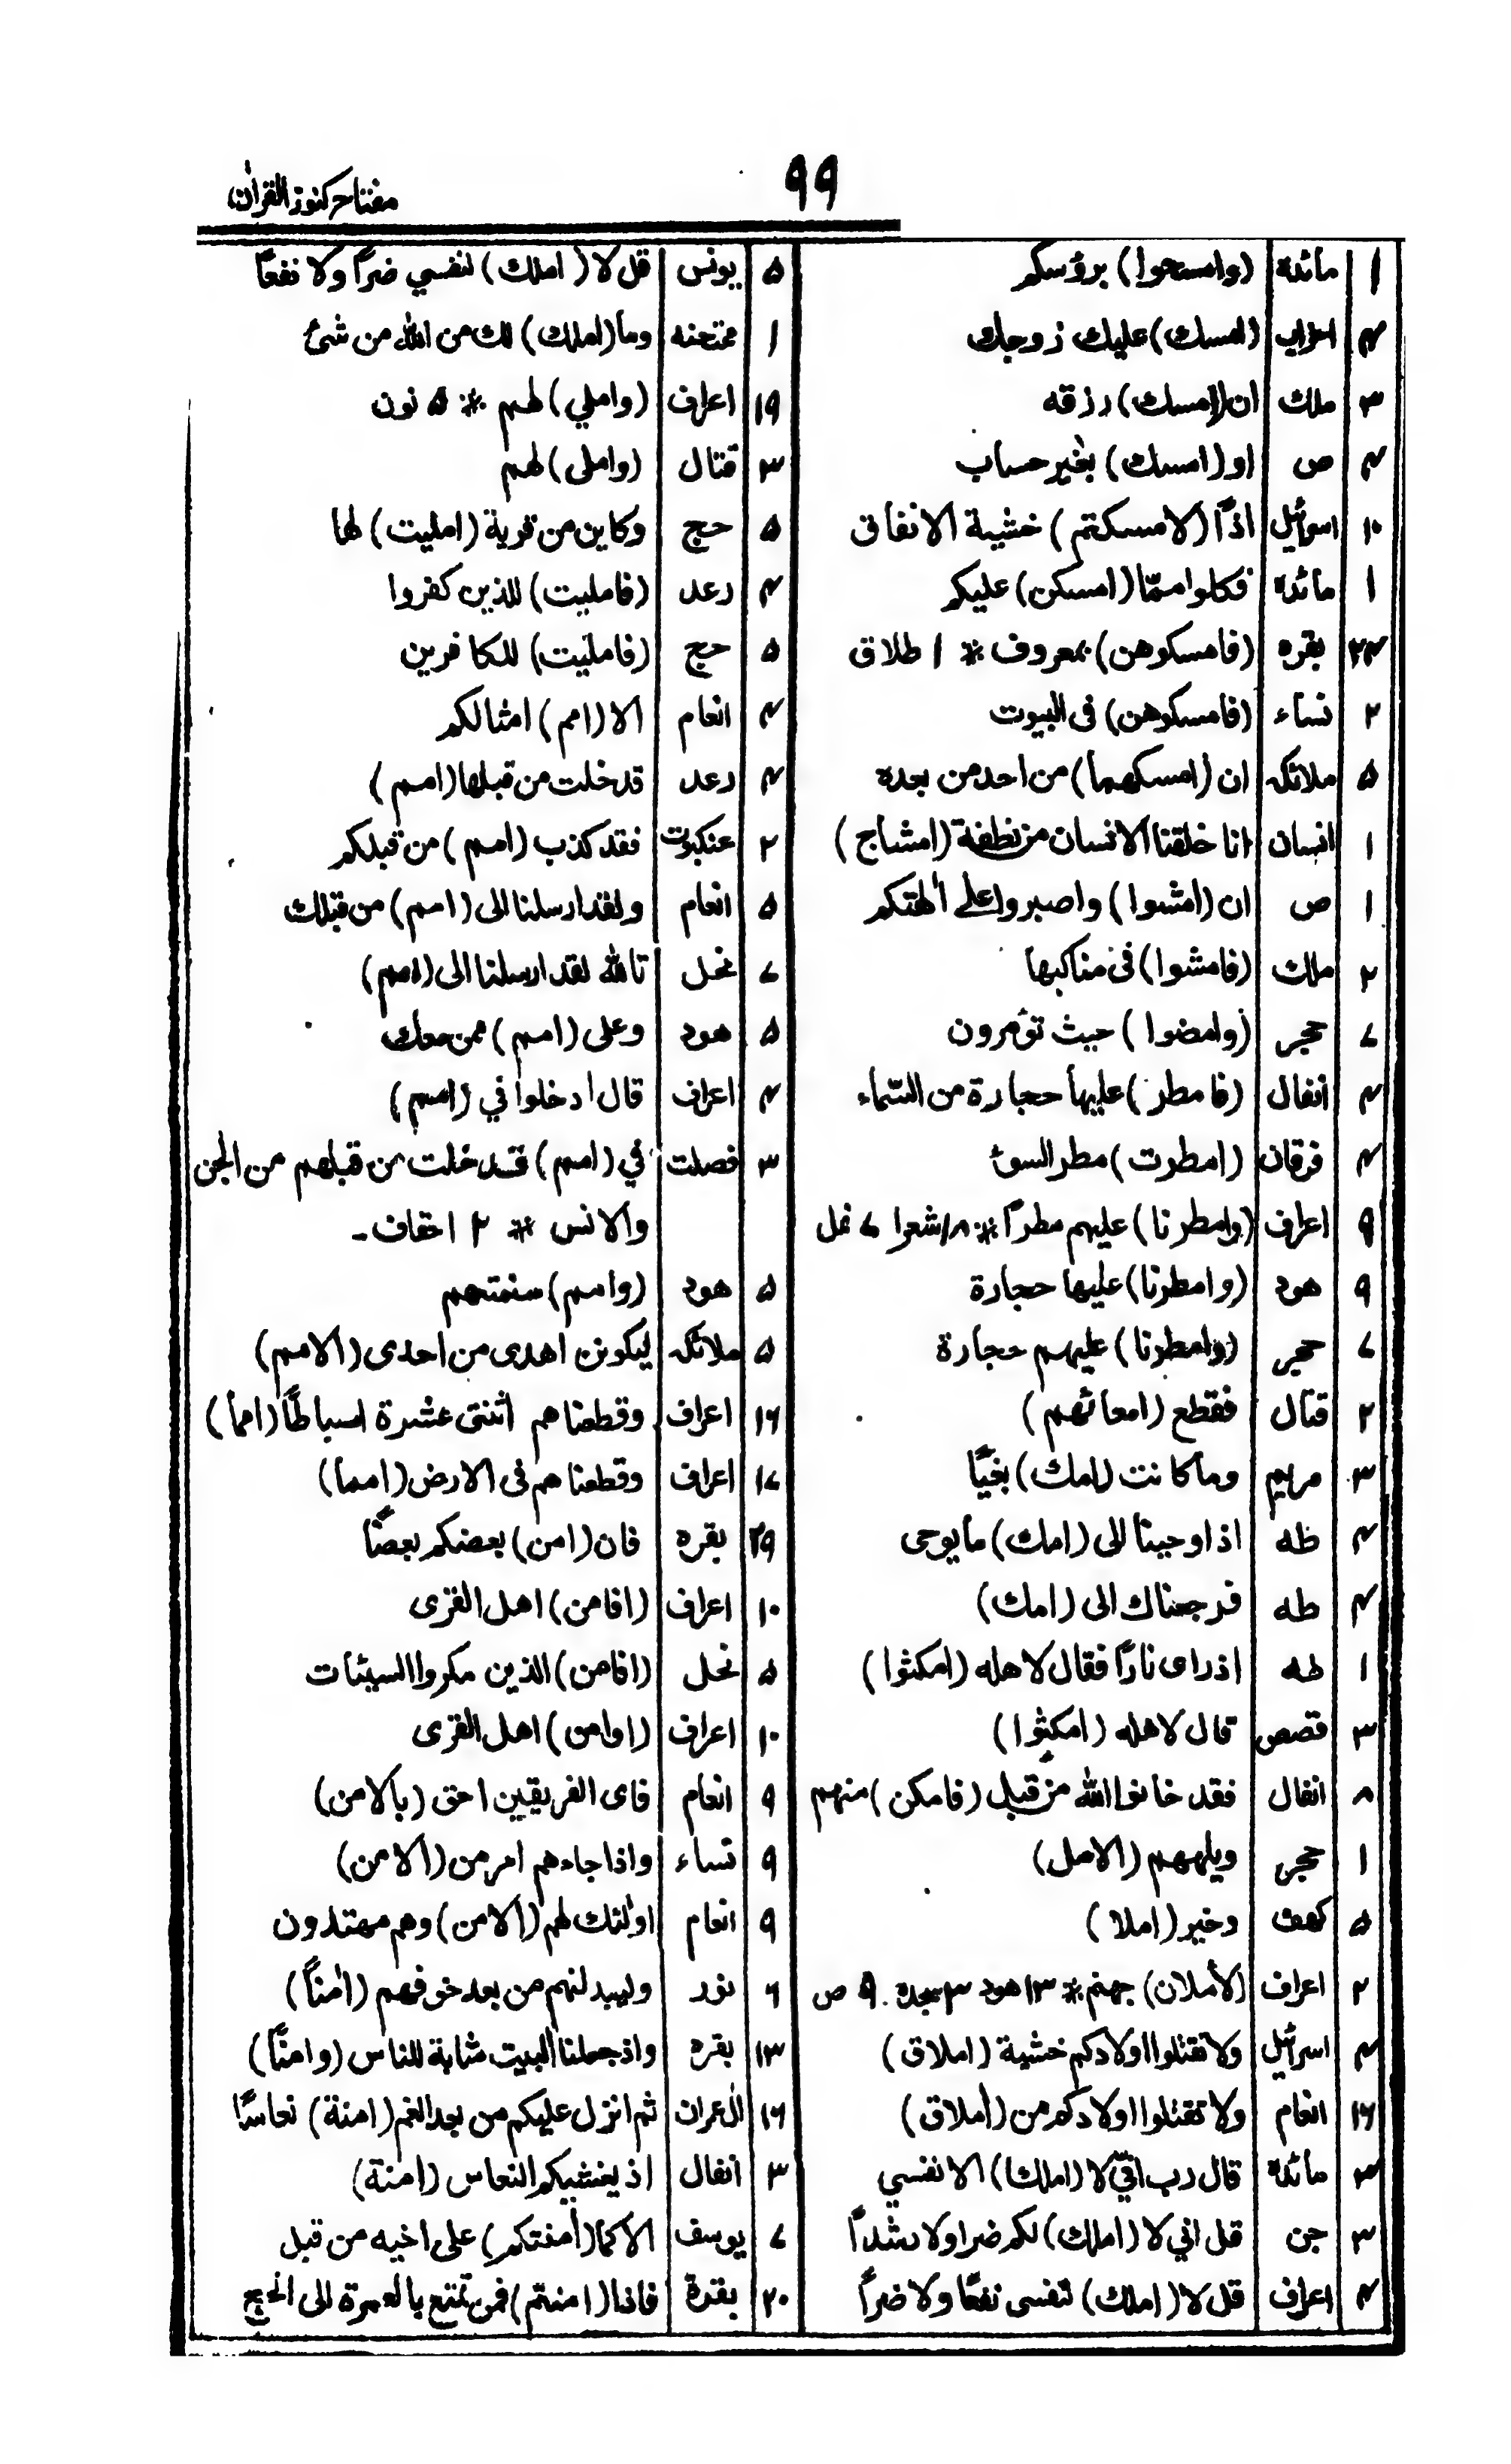 ٩٩
مفتاح کنوز القرآن
١ مائدة (وامسحوا) برؤسكم
۴ احزاب (امسك) عليك زوجك
٣ ملك ان (امسك) رزقه
۴ ص او (امسك) بغير حساب
١٠ اسرائيل اذاً (لامسكتم) خشية الانفاق
١ مائدة فكلوا ممّا (امسكن) عليكم
بقره (فامسكوهن) بمعروف * ١ طلاق
٢ نساء (فامسكوهن) فى البيوت
۵ ملائكه ان (امسكهما) من احد من بعده
١ انسان انا خلقنا الانسان من نطفة (امشاج)
١ ص ان (امشوا) واصبروا على الهتكم
٢ ملك (فامشوا) فى مناكبها
۷ حجر (وامضوا) حيث تؤمرون
۴ انفال (فامطر) عليها حجارة من السّماء
۴ فرقان (امطرت) مطر السوء
٩ اعراف (وامطرنا) عليهم مطراً * شعرا ۷ نمل
٩ هود (وامطرنا) عليها حجارة
۷ حجر (وامطرنا) عليهم حجارة
٢ قتال فقطع (امعائهم)
٣ مريم وما كانت (امك) بغيّاً
۴ طه اذ اوحينا الى (امك) ما يوحى
۴ طه فرجعناك الى (امك)
١ طه اذ راى ناراً فقال لاهله (امكثوا)
٣ قصص قال لاهله (امكثوا)
انفال فقد خانوا الله من قبل (فامكن) منهم
١ حجر ويلههم (الامل)
۵ كهف وخير (املا)
٢ اعراف (لأملان) جهنم * هود سجده ص
۴ اسرائيل ولا تقتلوا اولادكم خشية (املاق)
١۶ انعام ولا تقتلوا اولادكم من (املاق)
مائدة قال رب انّي لا (املك) الا نفسي
٣ جن قل اني لا (املك) لكم ضرا ولا رشداً
۴ اعراف قل لا (املك) لنفسى نفعًا ولا ضراً
۵ يونس قل لا (املك) لنفسي ضراً ولا نفعاً
١ ممتحنه وما (املك) لك من الله من شئ
١٩ اعراف (واملي) لهم * ۵ نون
٣ قتال (واملى) لهم
۵ حج وكاين من قرية (امليت) لها
۴ رعد (فامليت) للذين كفروا
۵ حج (فامليت) للكافرين
۴ انعام الا (امم) امثالكم
۴ رعد قد خلت من قبلها (امم)
٢ عنكبوت فقد كذب (امم) من قبلكم
۵ انعام ولقد ارسلنا الى (امم) من قبلك
۷ نحل تالله لقد ارسلنا الى (امم)
۵ هود وعلى (امم) ممن معك
۴ اعراف قال ادخلوا في (امم)
٣ فصلت في (امم) قد خلت من قبلهم من الجن
والانس * ٢ احقاف۔
۵ هود (وامم) سنمتعهم
۵ ملائكه ليكونن اهدى من احدى (الامم)
١۶ اعراف وقطعناهم اثنتى عشرة اسباطاً (امما)
اعراف وقطعناهم فى الارض (امما)
٣٩ بقره فان (امن) بعضكم بعضًا
١٠ اعراف (افامن) اهل القرى
۵ نحل (افامن) الذين مكروا السيئات
١٠ اعراف (اوامن) اهل القرى
٩ انعام فاى الفريقين احق (بالامن)
٩ نساء واذا جاءهم امر من (الامن)
٩ انعام اولئك لهم (الامن) وهم مهتدون
۶ نور وليبدلنهم من بعد خوفهم (امناً)
١٣ بقره واذ جعلنا البيت مثابة للناس (وامنًا)
١۶ ال عمران ثم انزل عليكم من بعد الغم (امنة) نعاسًا
٣ انفال اذ يغشيكم النعاس (امنة)
۷ يوسف الا كما (أمنتكم) على اخيه من قبل
٢٠ بقرة فاذا (امنتم) فمن تمتع بالعمرة الى الحج